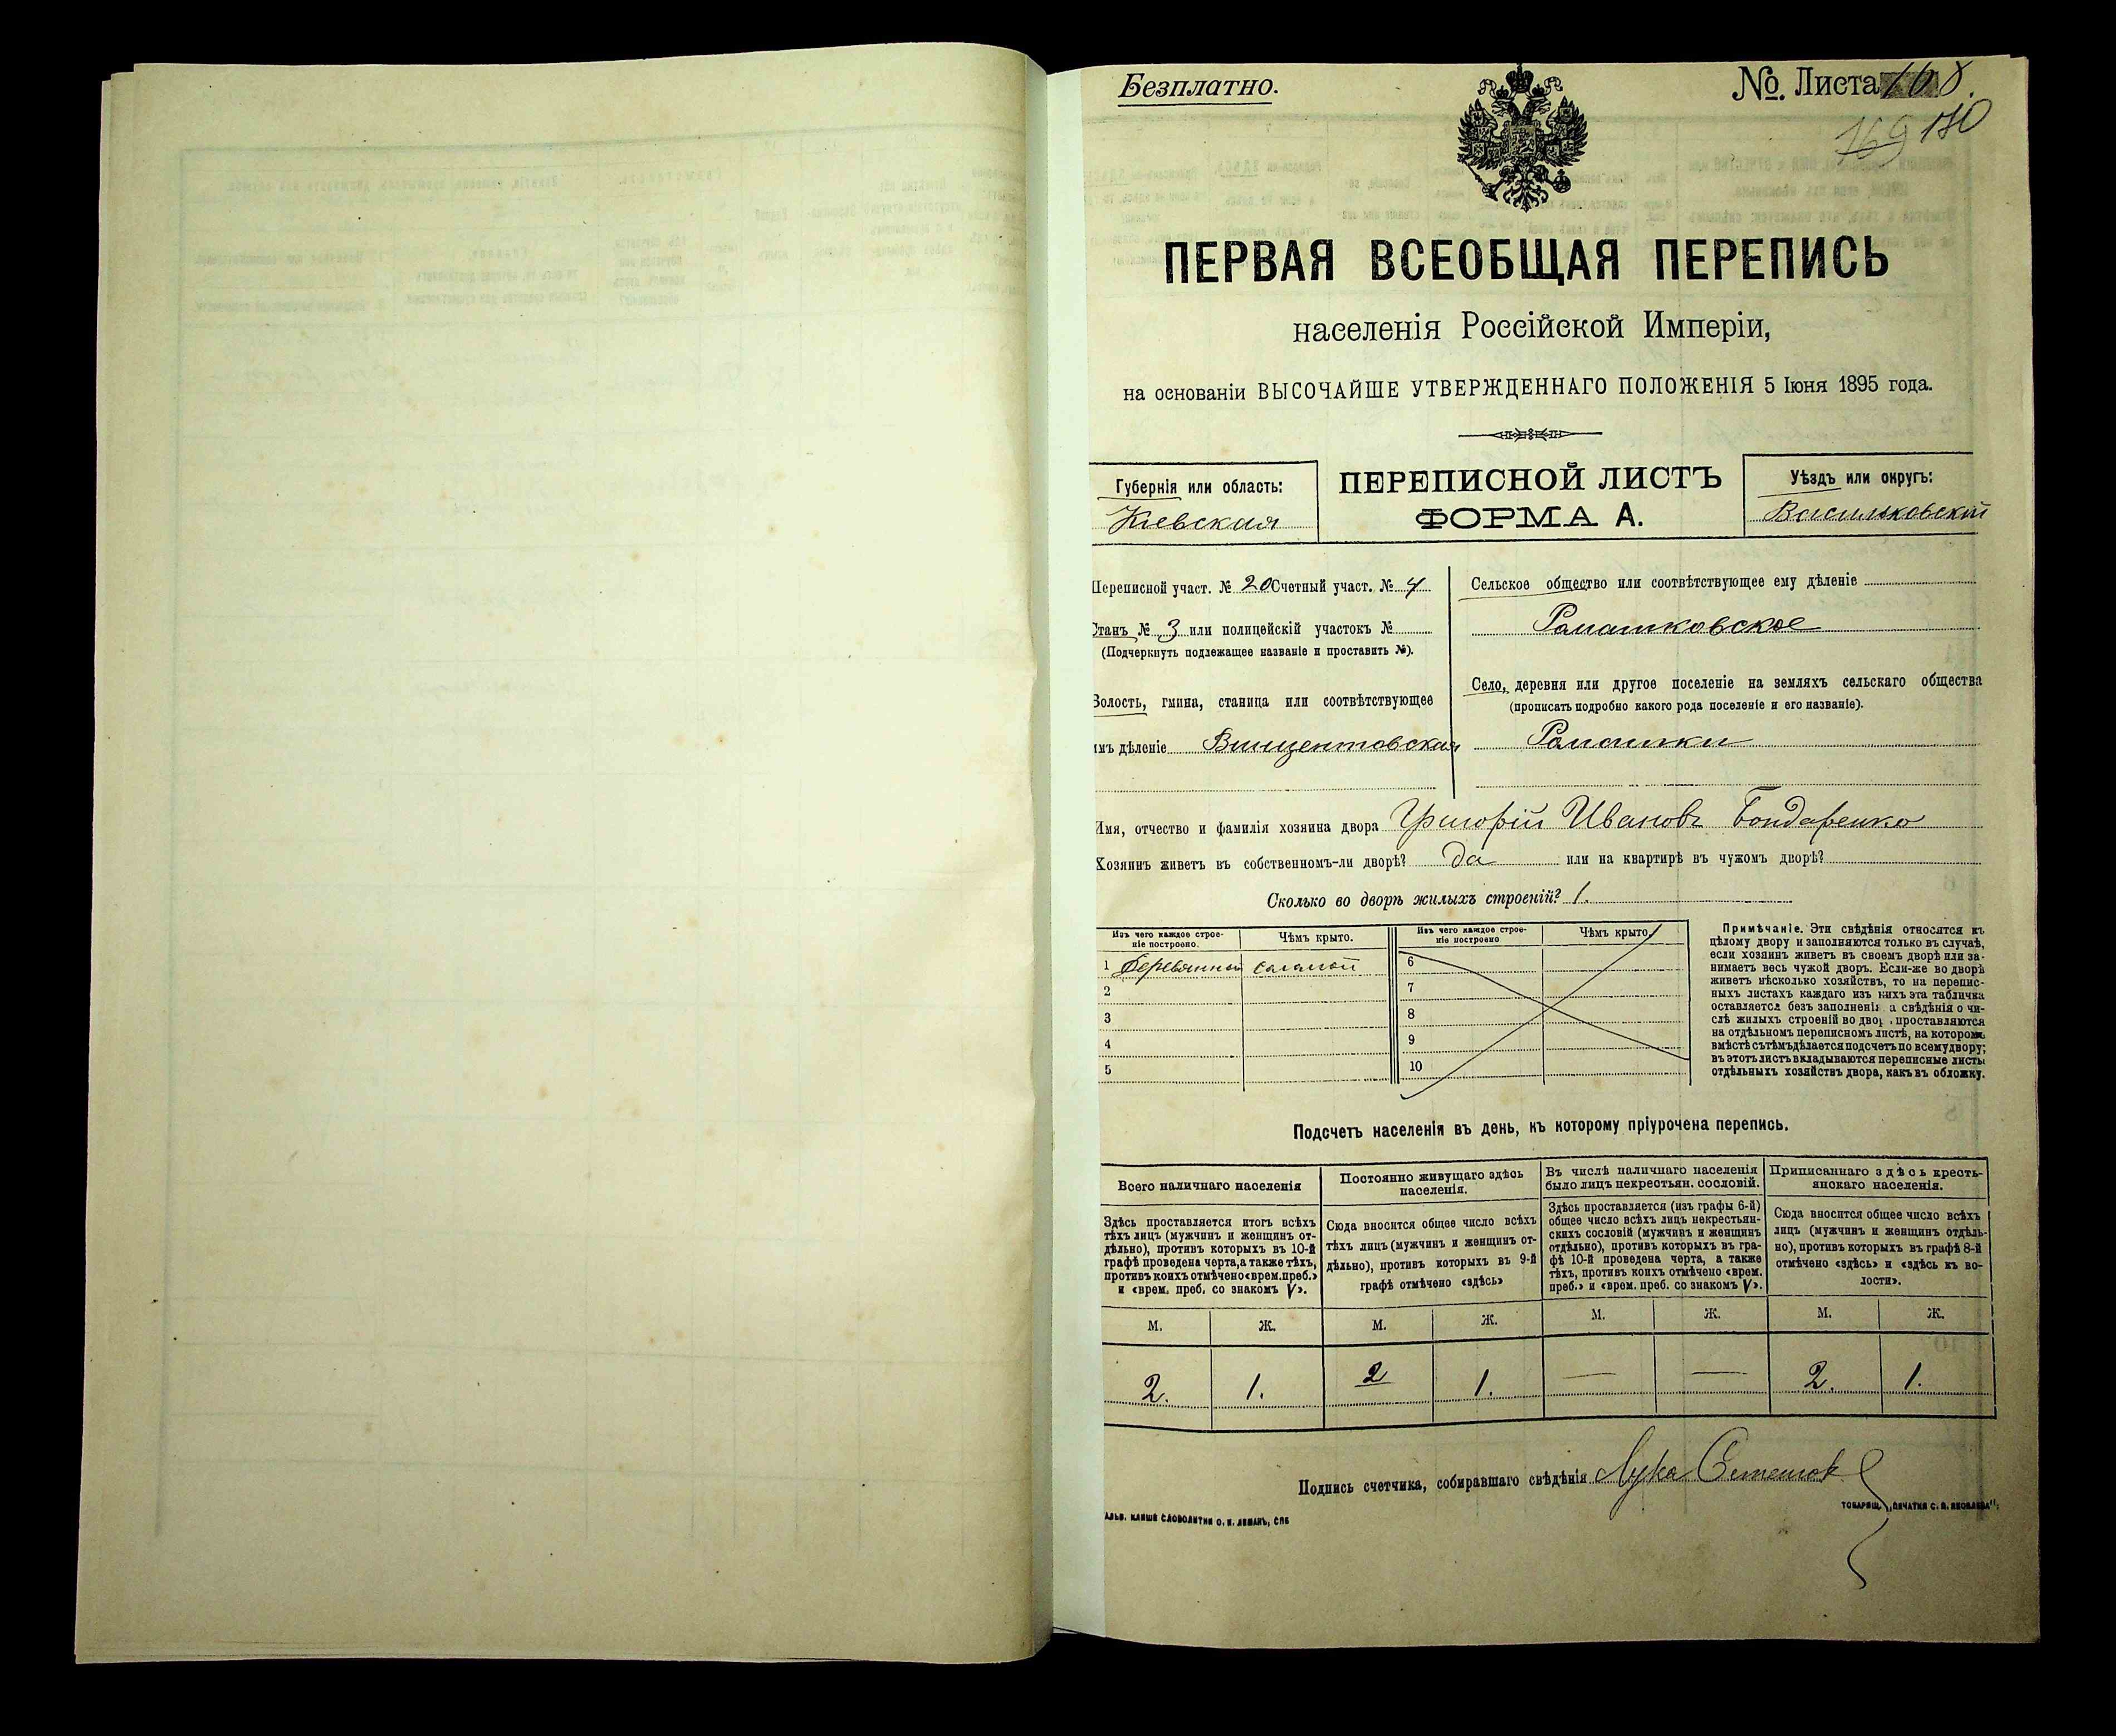 Безплатно.
№. Листа 108.
169 180
ПЕРВАЯ ВСЕОБЩАЯ ПЕРЕПИСЬ
населенія Россійской Имперіи,
на основаніи ВЫСОЧАЙШЕ УТВЕРЖДЕННАГО ПОЛОЖЕНІЯ 5 Іюня 1895 года.
Губернія или область:
Кіевская
ПЕРЕПИСНОЙ ЛИСТЪ
ФОРМА А.
Уѣздъ или округъ:
Васильковскій
Переписной участ. № 20 Счетный участ. № 4
Станъ № 3 или полицейскій участокъ №
(Подчеркнуть подлежащее названіе и проставить №).
Волость, гмина, станица или соотвѣтствующее
имъ дѣленіе Винцентовская
Сельское общество или соотвѣтствующее ему дѣленіе
Ромашковское
Село, деревня или другое поселеніе на земляхъ сельскаго общества
(прописать подробно какого рода поселеніе и его названіе).
Ромашки
Имя, отчество и фамилія хозяина двора Григорій Ивановъ Бондаренко
Хозяинъ живетъ въ собственномъ-ли дворѣ? да или на квартирѣ въ чужомъ дворѣ?
Сколько во дворѣ жилыхъ строеній? 1.
Изъ чего каждое строе-
ніе построено.
Чѣмъ крыто.
1 Деревянный соломой
2
3
4
5
Изъ чего каждое строе-
ніе построено
Чѣмъ крыто.
6
7
8
9
10
Примѣчаніе. Эти свѣдѣнія относятся къ
цѣлому двору и заполняются только въ случаѣ,
если хозяинъ живетъ въ своемъ дворѣ или за-
нимаетъ весь чужой дворъ. Если-же во дворѣ
живетъ нѣсколько хозяйствъ, то на перепис-
ныхъ листахъ каждаго изъ нихъ эта табличка
оставляется безъ заполненія а свѣдѣнія о чи-
слѣ жилыхъ строеній во двор проставляются
на отдѣльномъ переписномъ листѣ, на которомъ
вмѣстѣ съ тѣмъ дѣлается подсчетъ по всему двору;
въ этотъ листъ вкладываются переписные листы
отдѣльныхъ хозяйствъ двора, какъ въ обложку.
Подсчетъ населенія въ день, къ которому пріурочена перепись.
Всего наличнаго населенія
Здѣсь проставляется итогъ всѣхъ
тѣхъ лицъ (мужчинъ и женщинъ от-
дѣльно), противъ которыхъ въ 10-й
графѣ проведена черта, а также тѣхъ,
противъ коихъ отмѣчено «врем. преб.»
и «врем. преб. со знакомъ V».
Постоянно живущаго здѣсь
населенія.
Сюда вносится общее число всѣхъ
тѣхъ лицъ (мужчинъ и женщинъ от-
дѣльно), противъ которыхъ въ 9-й
графѣ отмѣчено «здѣсь»
Въ числѣ наличнаго населенія
было лицъ некрестьян. сословій.
Здѣсь проставляется (изъ графы 6-й)
общее число всѣхъ лицъ некрестьян-
скихъ сословій (мужчинъ и женщинъ
отдѣльно), противъ которыхъ въ гра-
фѣ 10-й проведена черта, а также
тѣхъ, противъ коихъ отмѣчено «врем.
преб.» и «врем. преб. со знакомъ V».
Приписаннаго здѣсь кресть-
янскаго населенія.
Сюда вносится общее число всѣхъ
лицъ (мужчинъ и женщинъ отдѣль-
но), противъ которыхъ въ графѣ 8-й
отмѣчено «здѣсь» и «здѣсь къ во-
лости».
М. Ж. М. Ж. М. Ж. М. Ж.
2. 1. 2 1. — — 2. 1.
Подпись счетчика, собиравшаго свѣдѣнія Лука
АЛЬВ. КЛИШЕ СЛОВОЛИТНИ О. И. ЛЕМАНЪ, СПБ
ТОВАРИЩ. „ПЕЧАТНЯ С. П. ЯКОВЛЕВА“.